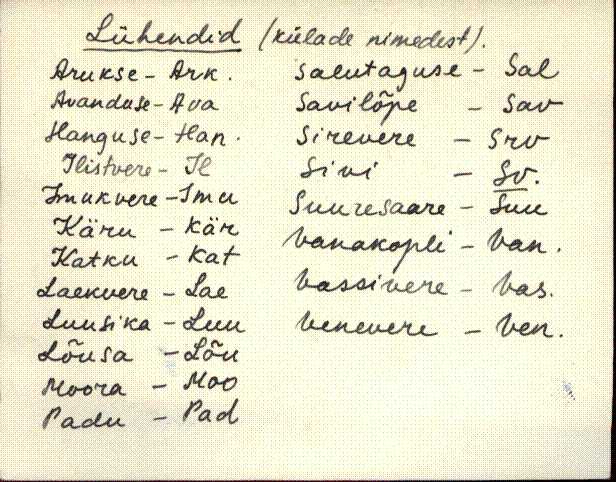 Lühendid (külade nimedest).
Arukse - Ark.
Avanduse - Ava
Hanguse - Han.
Ilistvere - Il
Imukvere - Imu
Käru - Kär
Katku - Kat
Laekvere - Lae
Luusika - Luu
Lõusa - Lõu
Moora - Moo
Padu - Pad
Salutaguse - Sal
Savilõpe - Sav
Sirevere - Srv
Sivi - Sv.
Suuresaare - Suu
Vanakopli - Van.
Vassivere - Vas.
Venevere - Ven.